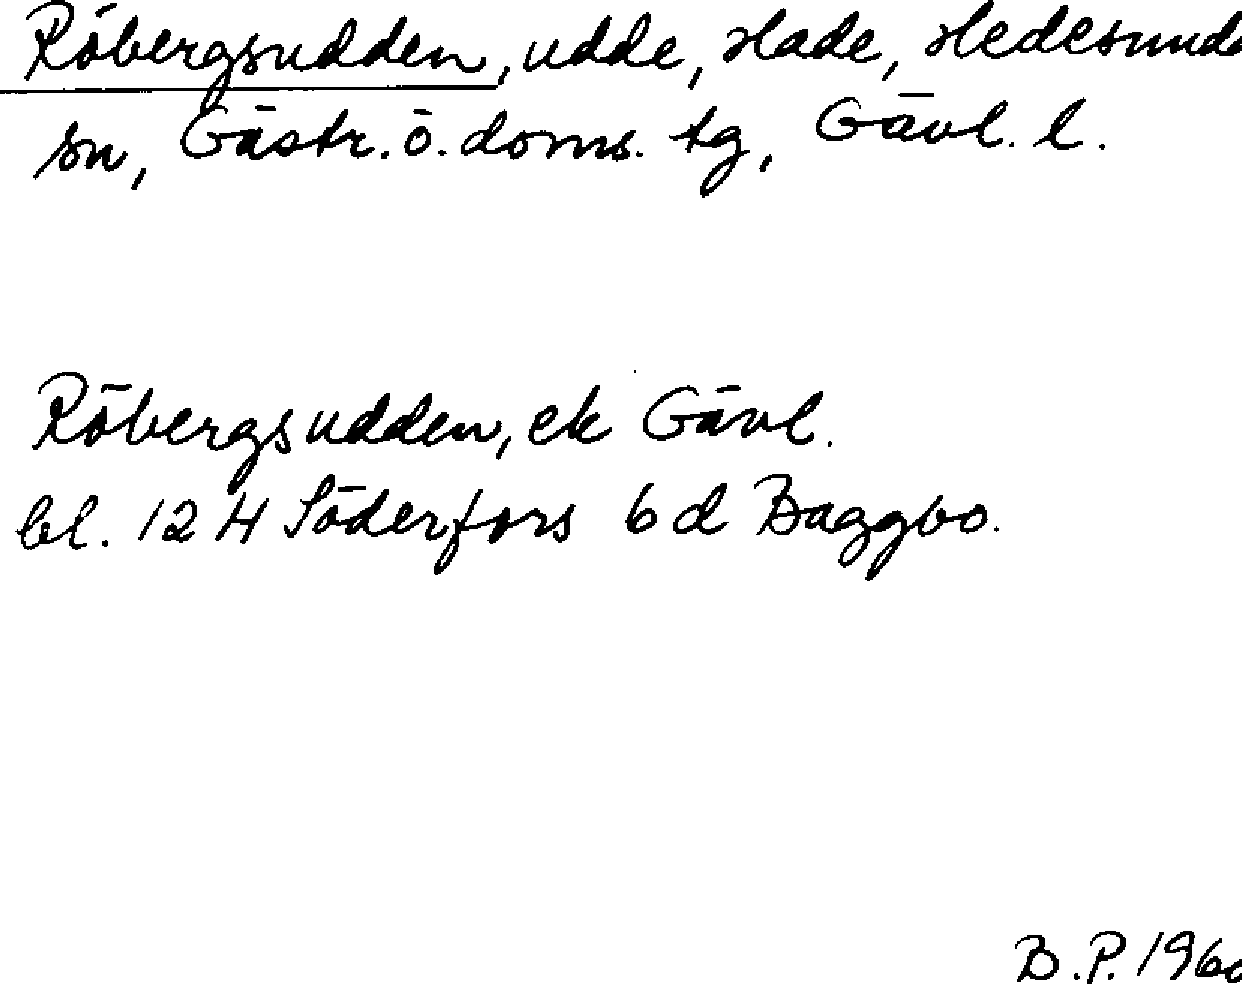 Röbergsudden, udde, Hade, Hedesunda
sn, Gästr. ö. doms. tg, Gävl. l.
Röbergsudden, ek Gävl.
bl. 12 H Söderfors 6 d Baggbo.
B.P. 1960